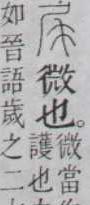 微也。微當
護也
如晉語歲之二